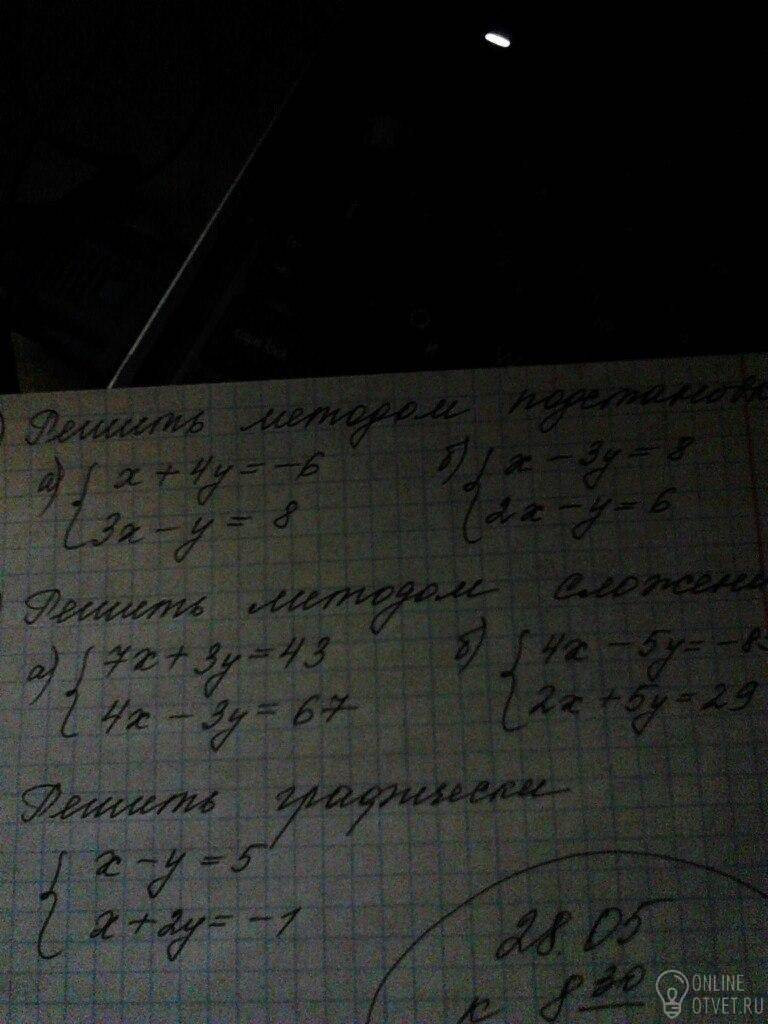 Решить методом подстановк
а) { x + 4y = -6 б) { x - 3y = 8
3x - y = 8 2x - y = 6
Решить методом сложени
а) { 7x + 3y = 43 б) { 4x - 5y = -83
4x - 3y = 67 2x + 5y = 29
Решить графически
{ x - y = 5
x + 2y = -1
28.05
к 8 30
ONLINE
OTVET.RU